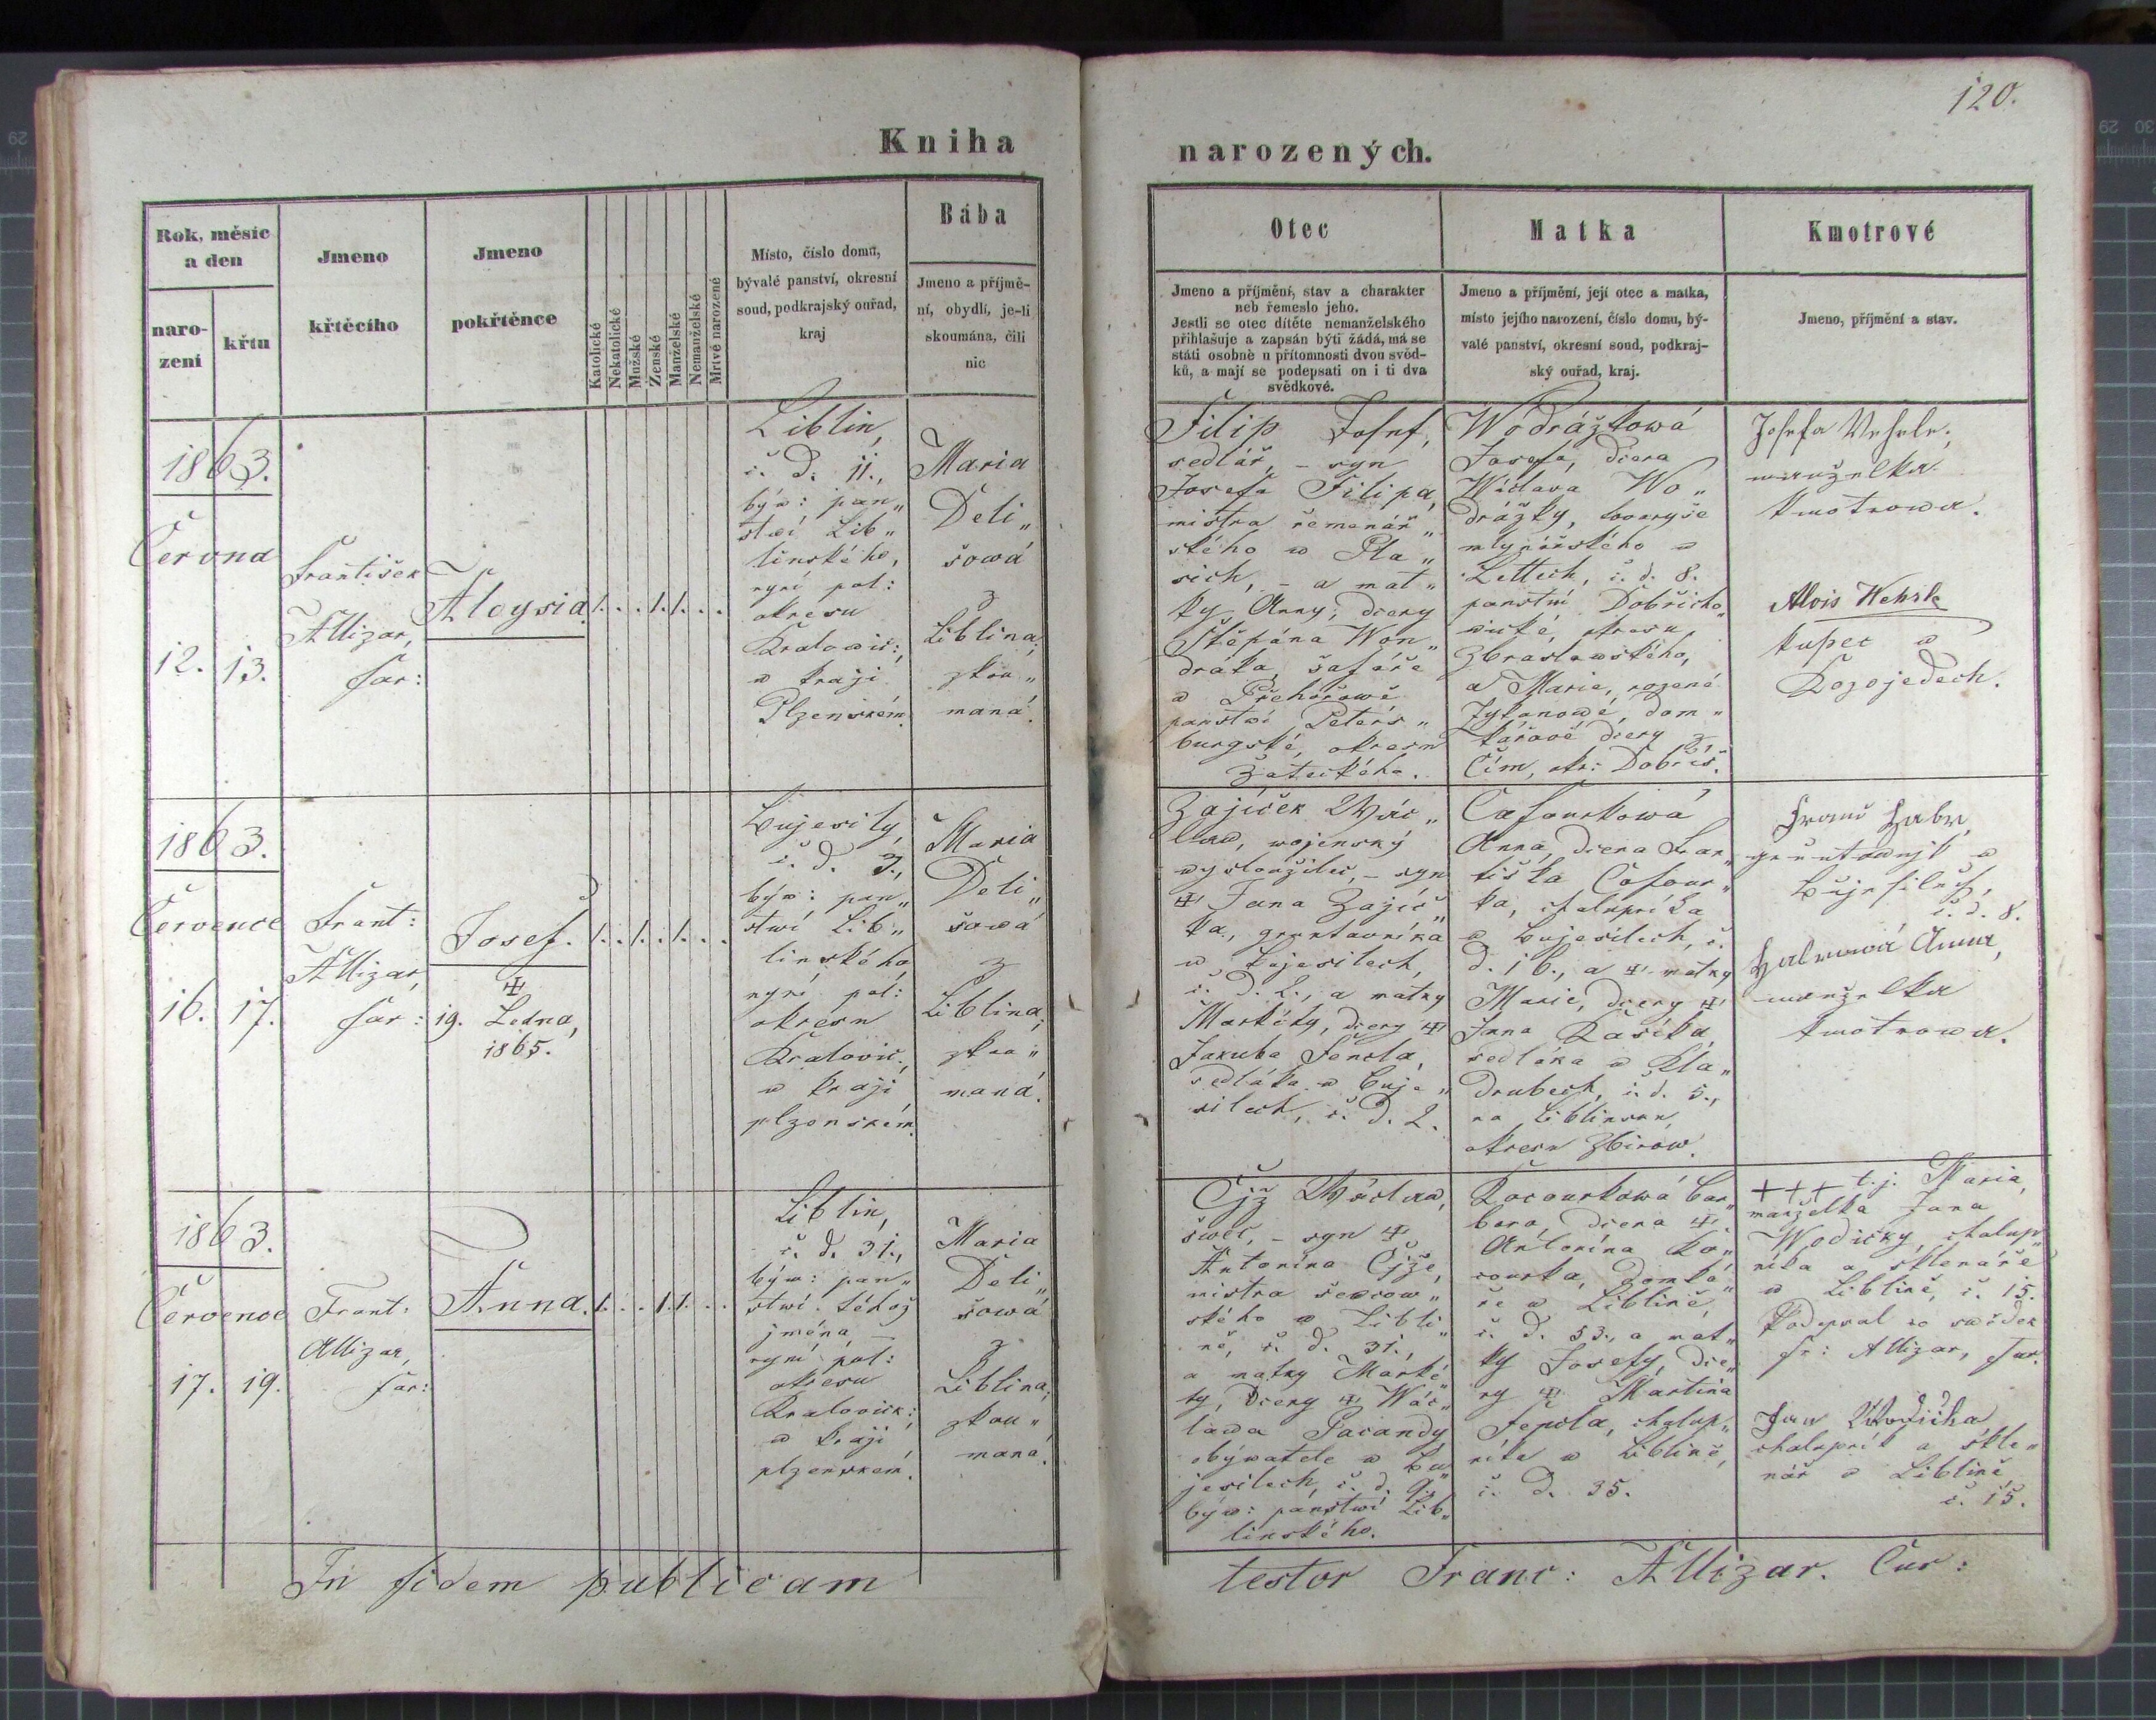 120.
Kniha
narozených.
Rok, měsíc
a den
naro-
zení
křtu
Jmeno
křtěcího
Jmeno
pokřtěnce
Katolické
Nekatolické
Mužské
Ženské
Manželské
Nemanželské
Mrtvé narozené
Místo, číslo domu,
bývalé panství, okresní
soud, podkrajský ouřad,
kraj
Bába
Jmeno a příjmě-
ní, obydlí, je-li
skoumána, čili
nic
Otec
Jmeno a příjmění, stav a charakter
neb řemeslo jeho.
Jestli se otec dítěte nemanželského
přihlašuje a zapsán býti žádá, má se
státi osobně u přítomnosti dvou svěd-
ků, a mají se podepsati on i ti dva
svědkové.
Matka
Jmeno a příjmění, její otec a matka,
místo jejího narození, číslo domu, bý-
valé panství, okresní soud, podkraj-
ský ouřad, kraj.
Kmotrové
Jmeno, příjmění a stav.
1863.
Června
12. 13.
František
Allizar,
far:
Aloysia.
1. . . 1. 1. . .
Liblin,
č. d. 11.,
býv: pan„
stwí Lib„
linského,
nyní pol:
okresu
Kralowic:,
w kraji
Plzenském.
Maria
Deli„
šowá
z
Liblina,
zkou„
maná.
Filip Josef,
sedlář, – syn
Josefa Filipa,
mistra řemenář„
ského w Pla„
sich, – a mat„
ky Anny, dcery
Štěpána Won„
dráka, šafáře
w Přehořowě
panstwí Peters„
burgské, okresu
Žateckého.
Wodrážkowá
Josefa, dcera
Wáclava Wo„
drážky, towaryše
mlynářského w
Lettech, č. d. 8.
panstwí Dobřicho„
wické, okresu
Zbraslawského,
a Marie, rozené
Zykanowé, dom„
kářowé dcery z
Čím, okr: Dobříš.
Josefa Wehrle,
manželka
kmotrowa.
Alois Wehrle
kupec w
Kozojedech.
1863.
Července
16. 17.
Frant:
Allizar,
far:
Josef.
19. Ledna,
1865.
1. . 1. . 1. . .
Bujesily,
č. d. 3.,
býv: pan„
stwí Lib„
linského
nyní pol:
okresu
Kralovic,
w kraji
plzenském.
Maria
Deli„
šowá
z
Liblina,
zkou„
maná.
Zajíček Wác„
law, wojenský
wysloužilec, – syn
Jana Zajíč„
ka, gruntovníka
w Bujesilech,
č. d. 2., a matky
Markéty, dcery
Jakuba Fencla,
sedláka w Buje„
silech, č. d. 2.
Cafourkowá
Anna, dcera
Cafour„
ka, chalupníka
w Bujesilech, č.
d. 16., a matky
Marie, dcery
Jana Kasíka,
sedláka w Kla„
drubech, č. d. 5.,
na Liblinsku,
okresu Zbirow.
Franz Habr,
w
č. d. 8.
Habrová Anna,
manželka
kmotrowa.
1863.
Července
17. 19.
Frant:
Allizar,
far:
Anna.
1. . . 1. 1. . .
Liblin,
č. d. 31.,
býv: pan„
stwí téhož
jména, –
nyní pol:
okresu
Kralovick:,
w kraji
plzenském.
Maria
Deli„
šowá
z
Liblina,
zkou„
maná.
Čjž Wáclaw,
šwec, – syn
Antonína Čjže,
mistra šewcow„
ského w Libli„
ně, č. d. 31.,
a matky Marké„
ty, dcery Wác„
lawa Pacandy,
obýwatele w Bu„
jesilech, č. d. 9.,
býw: panstwí Lib„
linského.
Kocourkowá Bar„
bora, dcera
Antonína Ko„
courka, domká„
ře w Liblině,
č. d. 53., a mat„
ky Josefy, dce„
ry Martina
Fencla, chalup„
níka w Liblině,
č. d. 35.
+++ t.j. Maria,
manželka Jana
Wodičky, chalup„
níka a sklenáře
w Liblině, č. 15.
Podepsal co swědek
Fr: Allizar, far.
Jan Wodička
chalupník a skle„
nář w Liblině,
č. 15.
In fidem publicam
testor Franc: Allizar. Cur: